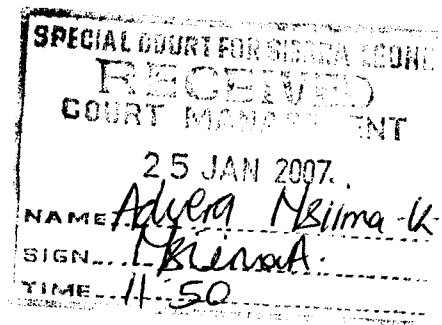 SPECIAL COURT FOR SIERRA LEONE
RECEIVED
COURT MANAGEMENT
25 JAN 2007.
NAME Advera Nsiima K
SIGN
TIME 11:50